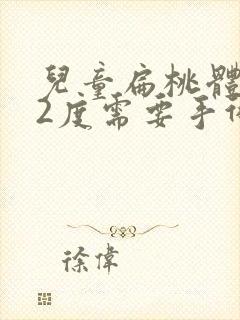 兒童扁桃體
2度需要手術
徐偉